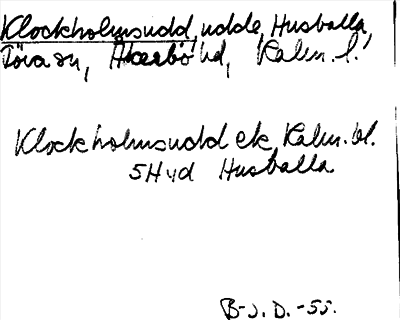 Klockholmsudd, udde, Husvalla,
Töra sn, Åkerbo hd, Kalm. l.
Klockholmsudd ek Kalm. bl.
5H vd Husvalla
B-J. D. -55.